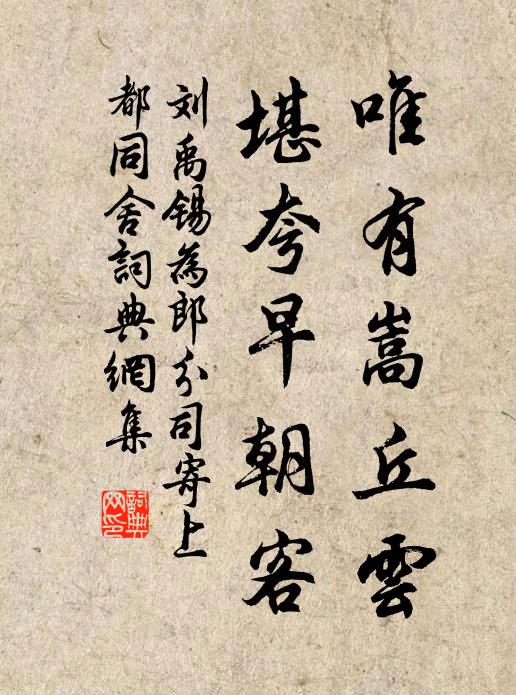 唯有嵩丘雲
堪夸早朝客
刘禹锡為郎分司寄上
都同舍詞典網集
詞典網印